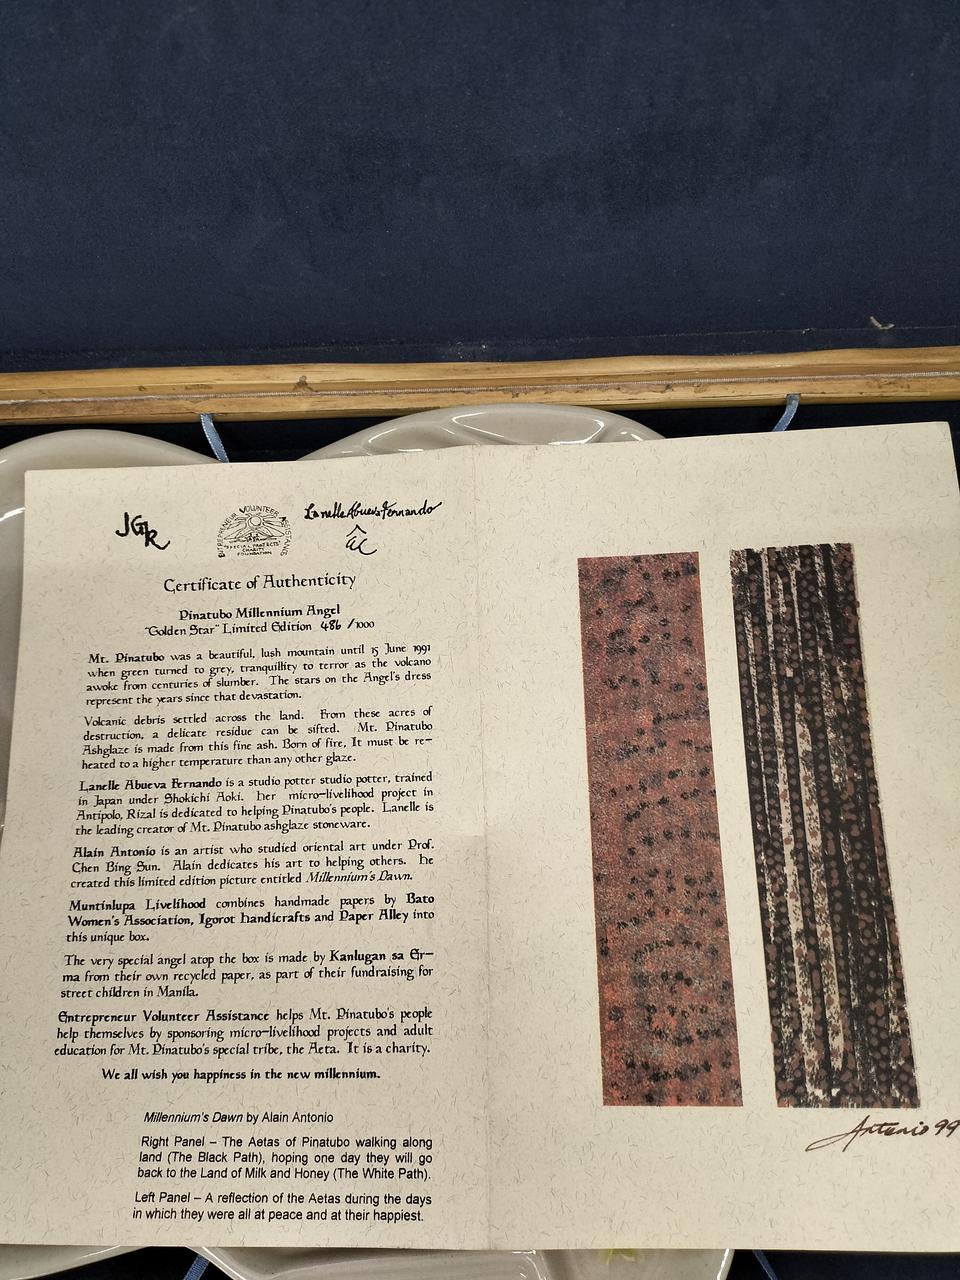 JGR
ENTREPRENEUR VOLUNTEER ASSISTANCE
"SPECIAL PROJECTS"
CHARITY
FOUNDATION
Lanelle Abueva-Fernando
Certificate of Authenticity
Pinatubo Millennium Angel
"Golden Star" Limited Edition 486 /1000
Mt. Pinatubo was a beautiful, lush mountain until 15 June 1991
when green turned to grey, tranquillity to terror as the volcano
awoke from centuries of slumber. The stars on the Angel's dress
represent the years since that devastation.
Volcanic debris settled across the land. From these acres of
destruction, a delicate residue can be sifted. Mt. Pinatubo
Ashglaze is made from this fine ash. Born of fire, It must be re-
heated to a higher temperature than any other glaze.
Lanelle Abueva Fernando is a studio potter studio potter, trained
in Japan under Shokichi Aoki. Her micro-livelihood project in
Antipolo, Rizal is dedicated to helping Pinatubo's people. Lanelle is
the leading creator of Mt. Pinatubo ashglaze stoneware.
Alain Antonio is an artist who studied oriental art under Prof.
Chen Bing Sun. Alain dedicates his art to helping others. He
created this limited edition picture entitled Millennium's Dawn.
Muntinlupa Livelihood combines handmade papers by Bato
Women's Association, Igorot Handicrafts and Paper Alley into
this unique box.
The very special angel atop the box is made by Kanlugan sa Er-
ma from their own recycled paper, as part of their fundraising for
street children in Manila.
Entrepreneur Volunteer Assistance helps Mt. Pinatubo's people
help themselves by sponsoring micro-livelihood projects and adult
education for Mt. Pinatubo's special tribe, the Aeta. It is a charity.
We all wish you happiness in the new millennium.
Millennium's Dawn by Alain Antonio
Right Panel – The Aetas of Pinatubo walking along
land (The Black Path), hoping one day they will go
back to the Land of Milk and Honey (The White Path).
Left Panel – A reflection of the Aetas during the days
in which they were all at peace and at their happiest.
Antonio 99